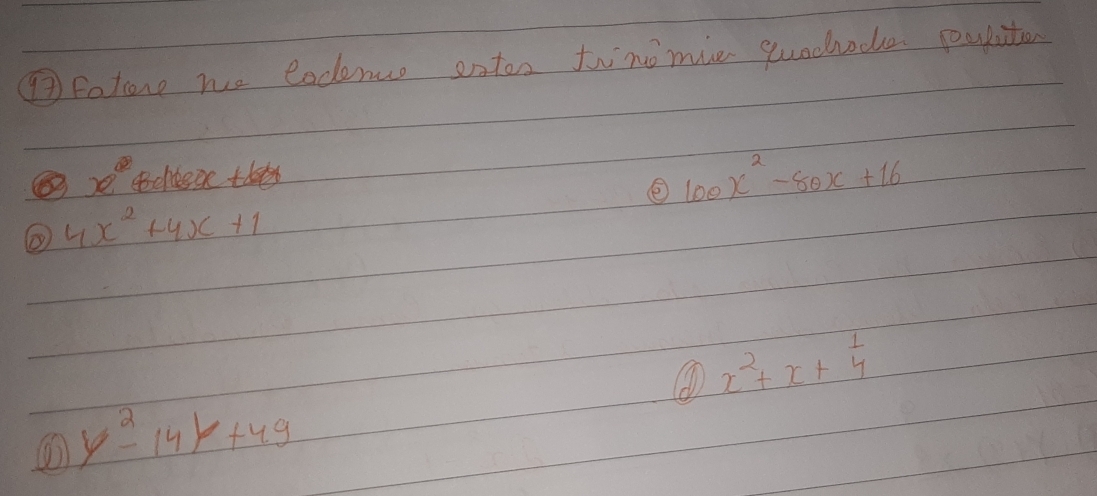 17) Fatore no caderno estes trinômio quadrados perfeitos
c) 100x² - 80x + 16
a) 4x² + 4x + 1
d) x² + x + 1/4
b) y² - 14y + 49